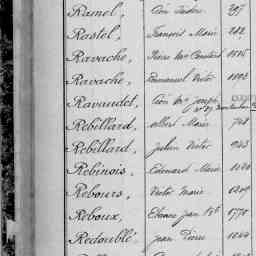 Ramel, Léon Isidore 297
Rastel, François Marie 282
Ravache, Pierre
Ravache, Emmanuel Victor
Ravaudet, Léon Mie Joseph
Rebillard, Albert Marie 748
Rebillard, Julien Victor 943
Rebinois, Edouard Marie
Rebours, Victor Marie 1209
Reboux, Etienne Jean Bte 1770
Redoublé, Jean Pierre